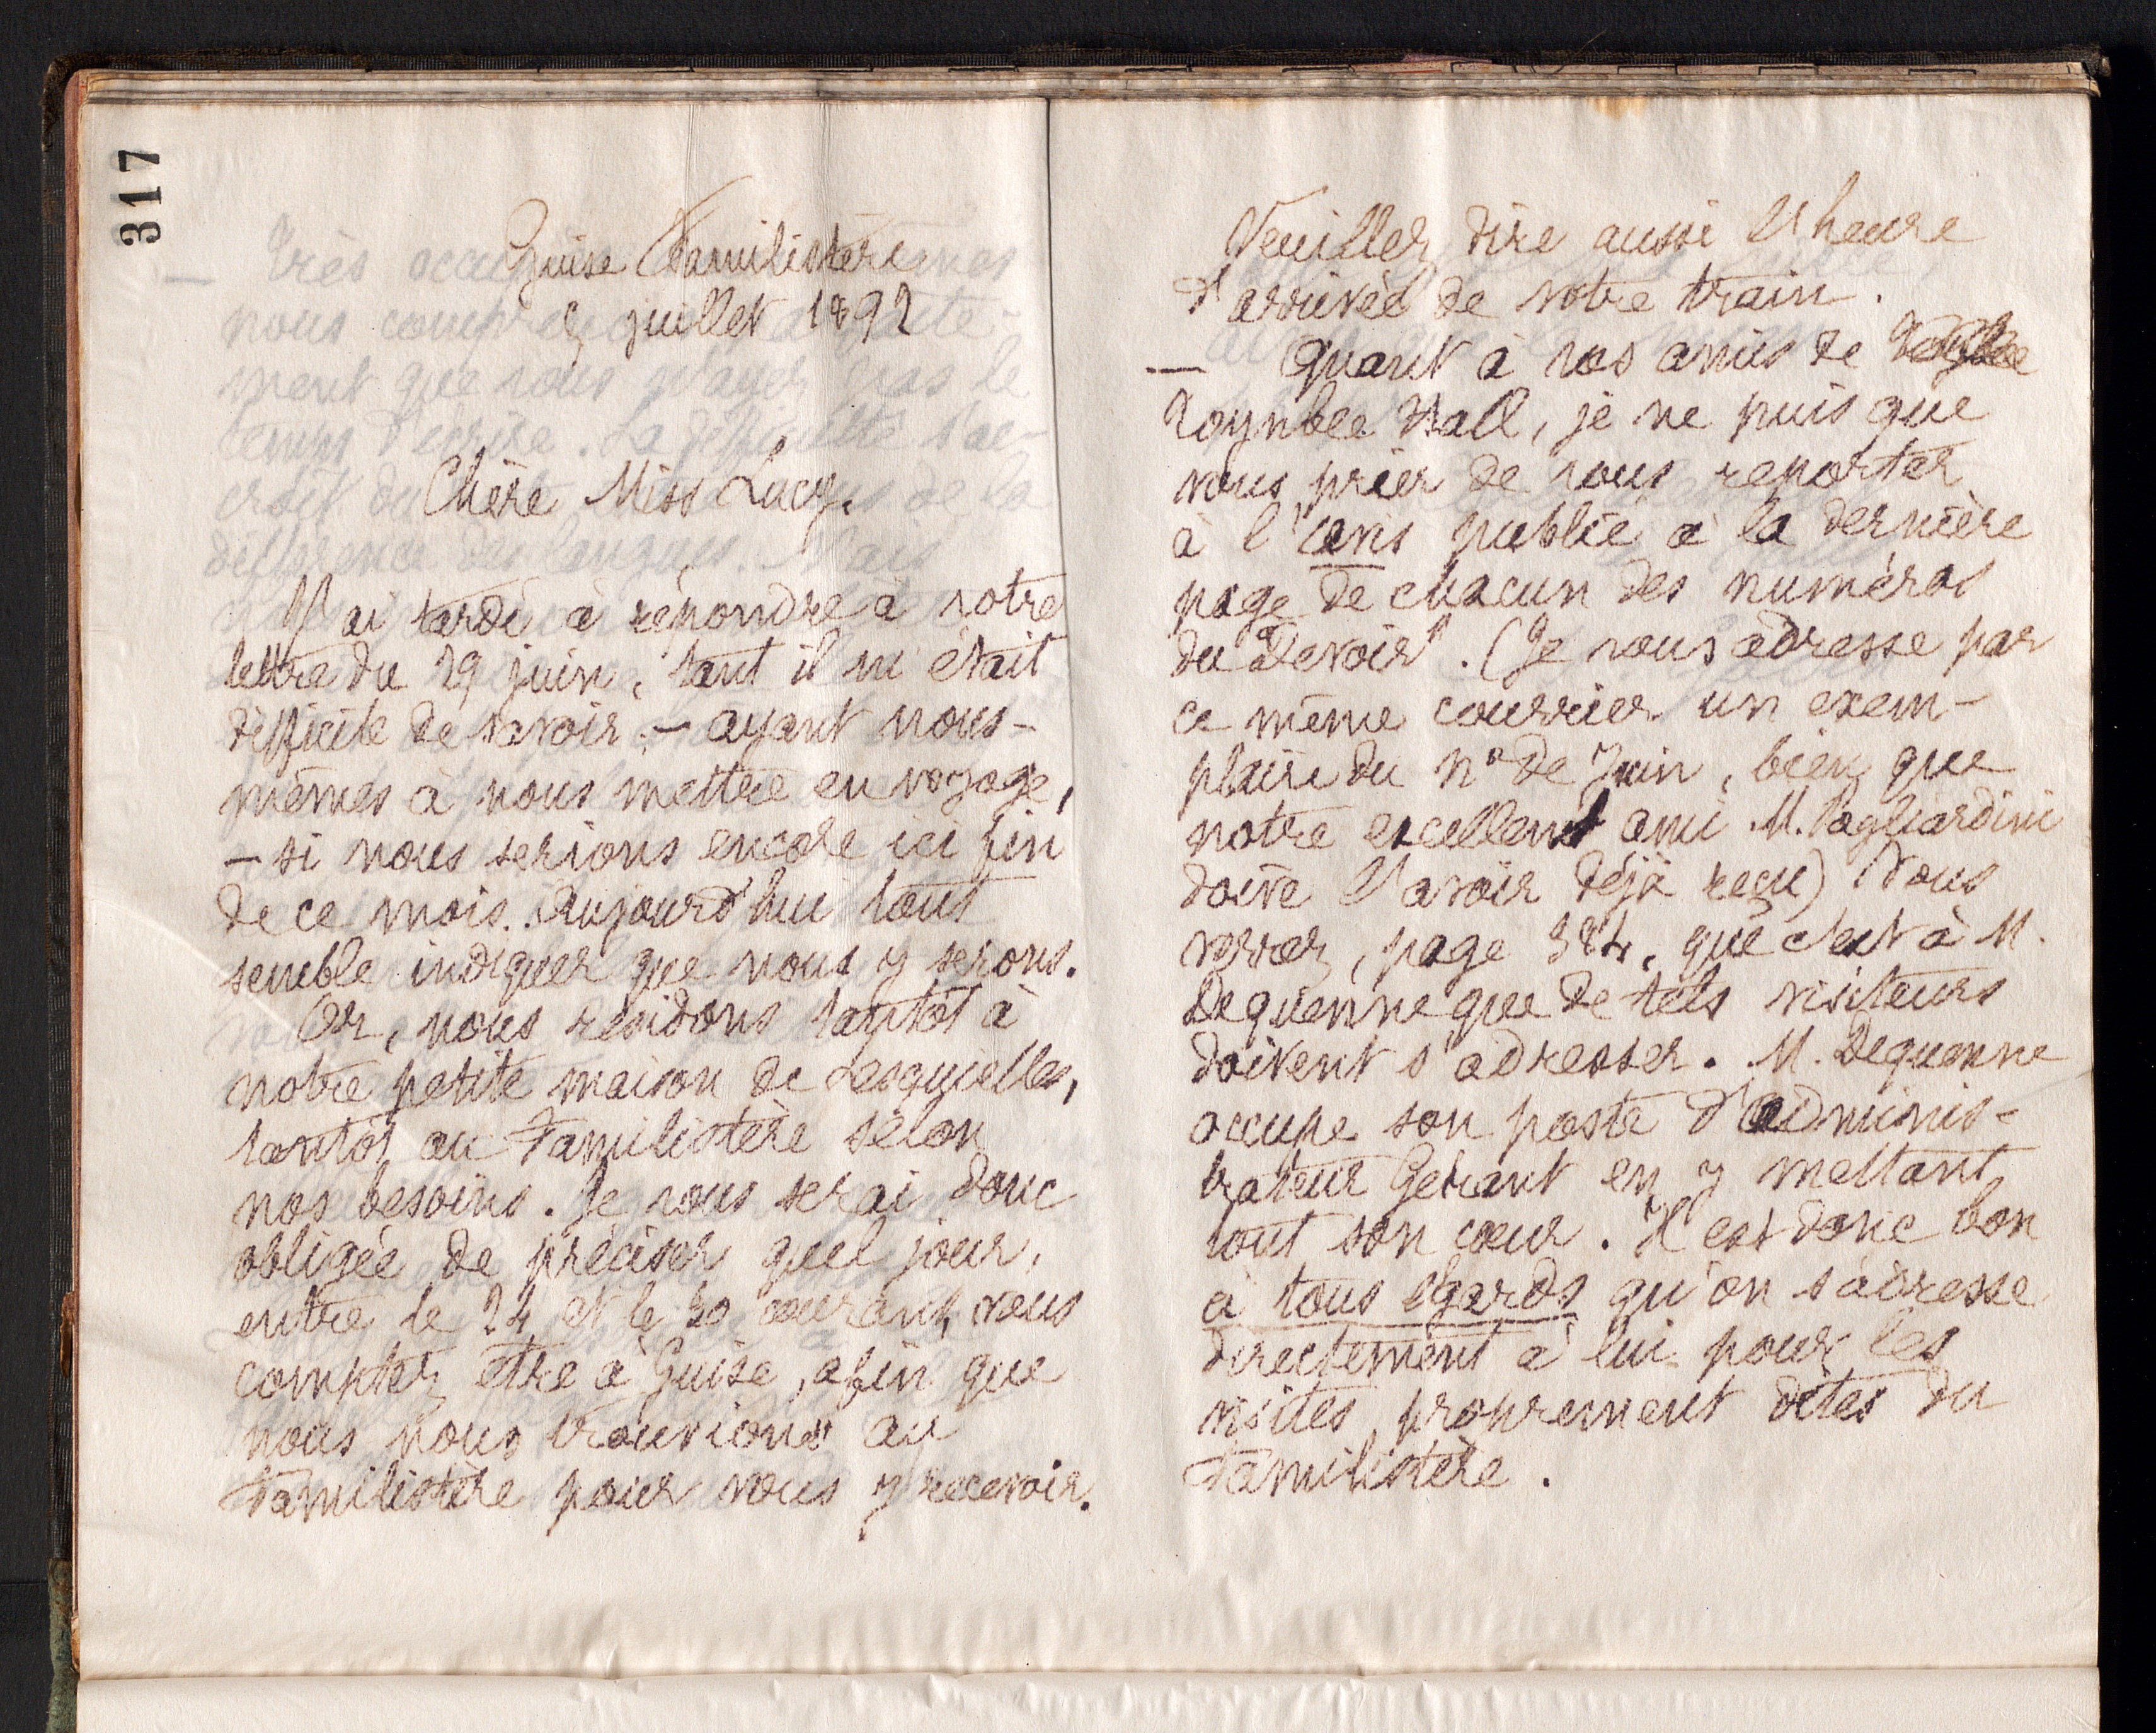 317
Guise Familistère
9 juillet 1892
Chère Miss Lucy,
J'ai tardé à répondre à votre
lettre du 29 juin, tant il m'était
difficile de savoir, – ayant nous-
mêmes à nous mettre en voyage,
– si nous serions encore ici fin
de ce mois. Aujourd'hui tout
semble indiquer que nous y serons.
Or, nous résidons tantôt à
notre petite maison de Lesquielles,
tantôt au Familistère selon
nos besoins. Je vous serai donc
obligée de préciser quel jour,
entre le 24 et le 30 courant, vous
comptez être à Guise, afin que
nous nous trouvions au
Familistère pour vous y recevoir.
Veuillez dire aussi l'heure
d'arrivée de votre train.
— Quant à vos amis de
Toynbee Hall, je ne puis que
vous prier de vous reporter
à l'avis publié à la dernière
page de chacun des numéros
du "Devoir". (Je vous adresse par
ce même courrier un exem-
plaire du nº de Juin, bien que
notre excellent ami M. Pagliardini
doive l'avoir déjà reçu) Vous
verrez, page 384, que c'est à M.
Dequenne que de tels visiteurs
doivent s'adresser. M. Dequenne
occupe son poste d'adminis-
trateur Gérant en y mettant
tout son cœur. Il est donc bon
à tous égards qu'on s'adresse
directement à lui pour les
visites proprement dites du
Familistère.